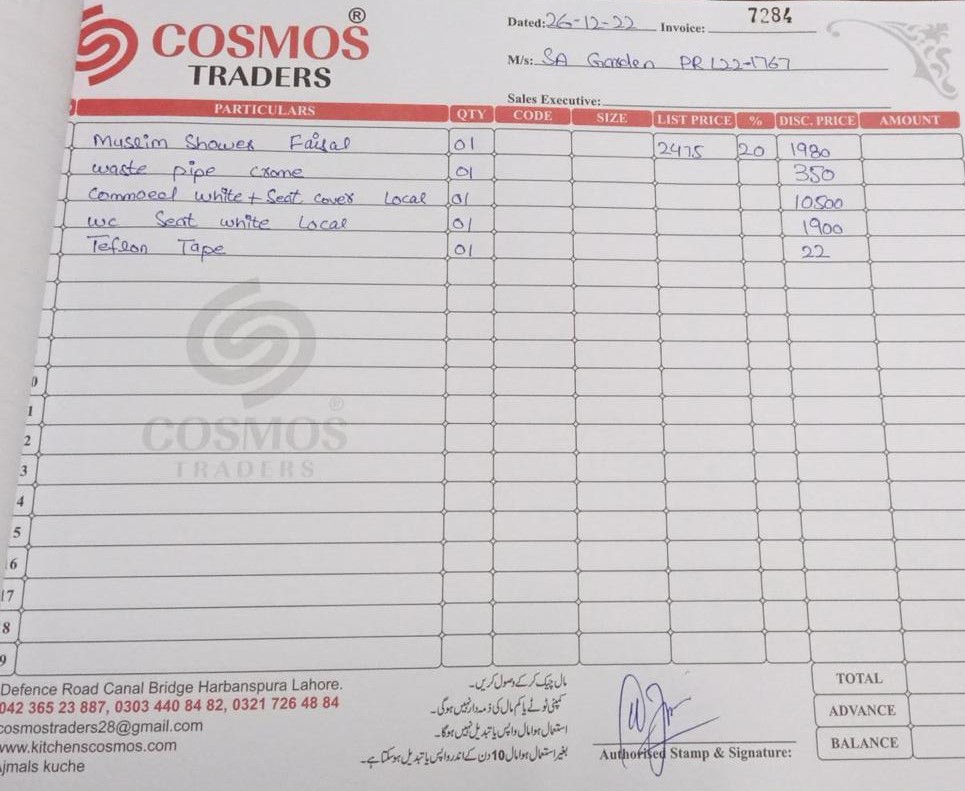 COSMOS ®
TRADERS
Dated: 26-12-22 Invoice: 7284
M/s: SA Garden PR 122-1767
Sales Executive:
PARTICULARS QTY CODE SIZE LIST PRICE % DISC. PRICE AMOUNT
Muslim Shower Faisal 01 2475 20 1980
waste pipe crome 01 350
Commoed white + Seat cover Local 01 10500
wc Seat white Local 01 1900
Teflon Tape 01 22
COSMOS ®
TRADERS
0
1
2
3
4
5
6
17
8
9
Defence Road Canal Bridge Harbanspura Lahore.
042 365 23 887, 0303 440 84 82, 0321 726 48 84
cosmostraders28@gmail.com
www.kitchenscosmos.com
ajmals kuche
مال چیک کر کے وصول کریں۔
کمپنی ٹوٹے یا کم مال کی ذمہ دار نہیں ہوگی۔
استعمال ہوا مال واپس یا تبدیل نہیں ہوگا۔
بغیر استعمال ہوا مال 10 دن کے اندر واپس یا تبدیل ہوسکتا ہے۔
Authorised Stamp & Signature:
TOTAL
ADVANCE
BALANCE